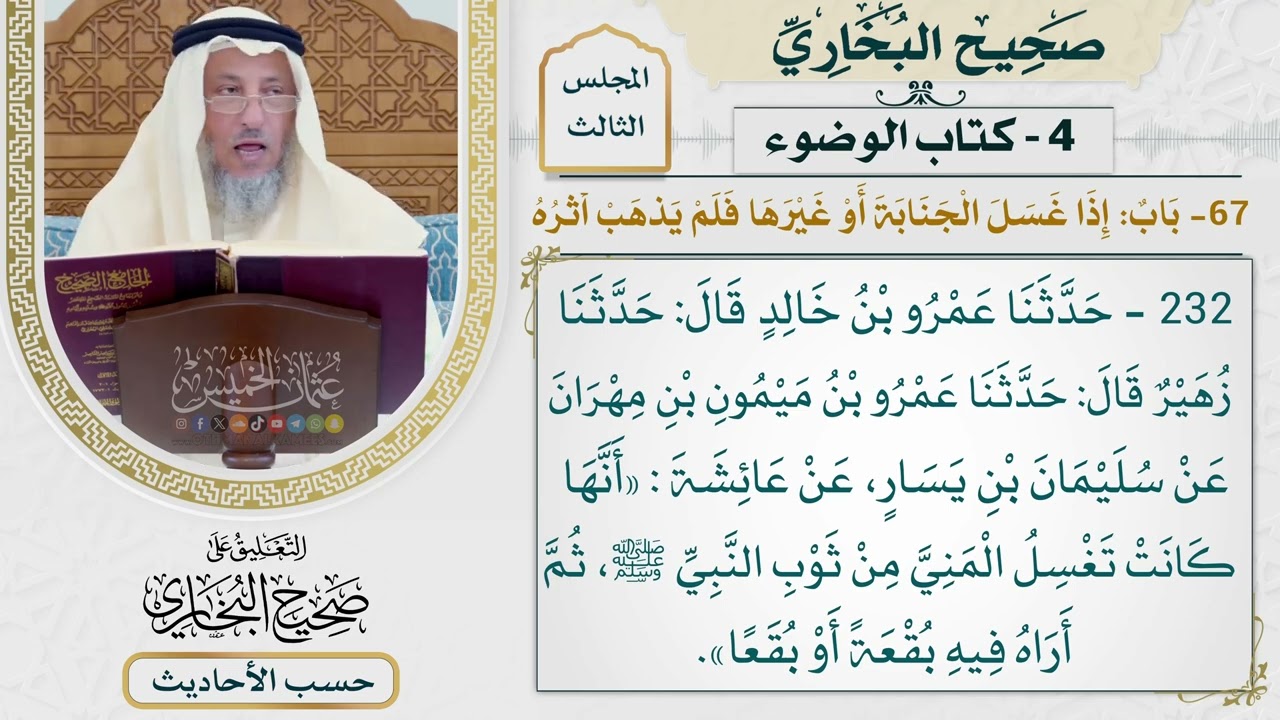 صَحِيح البُخَارِيِّ
المجلس
الثالث
4 - كتاب الوضوء
67- بَابٌ: إِذَا غَسَلَ الْجَنَابَةَ أَوْ غَيْرَهَا فَلَمْ يَذهَبْ آثرُهُ
232 - حَدَّثَنَا عَمْرُو بْنُ خَالِدٍ قَالَ: حَدَّثَنَا
زُهَيْرٌ قَالَ: حَدَّثَنَا عَمْرُو بْنُ مَيْمُونِ بْنِ مِهْرَانَ
عَنْ سُلَيْمَانَ بْنِ يَسَارٍ، عَنْ عَائِشَةَ: «أَنَّهَا
كَانَتْ تَغْسِلُ الْمَنِيَّ مِنْ ثَوْبِ النَّبِيِّ ﷺ، ثُمَّ
أَرَاهُ فِيهِ بُقْعَةً أَوْ بُقَعًا».
الجامع الصحيح
عثمان الخميس
التَّعْلِيقُ عَلَى
صَحِيحِ البُخَارِي
حسب الأحاديث